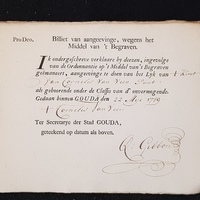 Pro Deo. Billet van aangeevinge, wegens het
Middel van 't Begraven.
Ik ondergeschreve verklaare by deezen, ingevolge
van de Ordonnantie op 't Middel van 't Begraven
geëmaneert, aangevinge te doen van het Lyk van 't Kint
van Cornelis van
als gehoorende onder de Classis van d' onvermogende.
Gedaan binnen GOUDA den 22
Cornelis van
Ter Secretarye der Stad GOUDA,
geteekend op datum als boven.